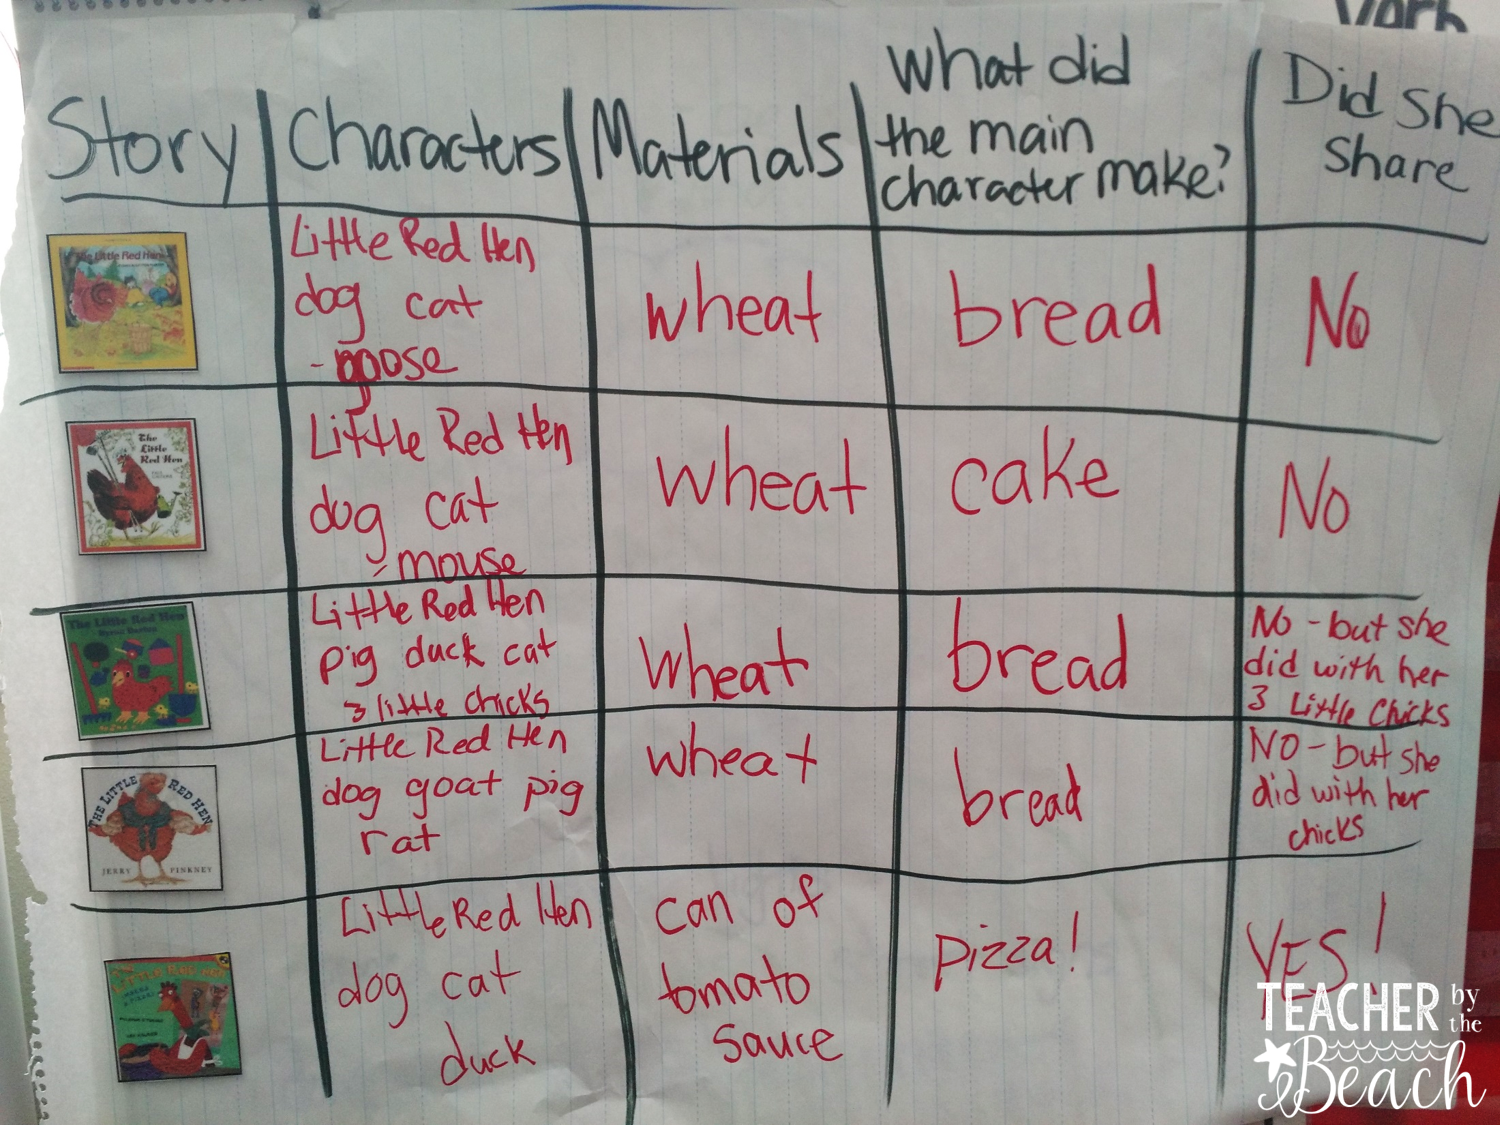 Story
Characters
Materials
What did
the main
character make?
Did She
Share
The Little Red Hen
Little Red Hen
dog cat
- goose
wheat
bread
No
The
Little
Red Hen
Little Red Hen
dog cat
- mouse
wheat
cake
No
The Little Red Hen
Byron Barton
Little Red Hen
pig duck cat
3 little chicks
wheat
bread
No - but she
did with her
3 Little Chicks
THE LITTLE RED HEN
JERRY PINKNEY
Little Red Hen
dog goat pig
rat
wheat
bread
NO - but she
did with her
chicks
LITTLE RED HEN
Little Red Hen
dog cat
duck
can of
tomato
sauce
pizza!
YES!
TEACHER by the
Beach